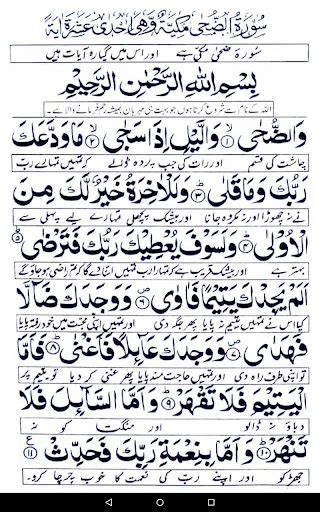 سُوْرَةُ الضُّحٰى مَكِّيَّةٌ وَّهِيَ اِحْدٰى عَشْرَةَ اٰيَةً
سورۃ ضحیٰ مکی ہے اور اس میں گیارہ آیات ہیں
بِسْمِ اللهِ الرَّحْمٰنِ الرَّحِيْمِ
اللہ کے نام سے شروع کرتا ہوں جو بہت ہی مہربان ہمیشہ رحم فرمانے والا ہے۔
وَالضُّحٰى ۱ وَالَّيْلِ اِذَا سَجٰى ۲ مَا وَدَّعَكَ
چاشت کی قسم اور رات کی جب پردہ ڈالے کہ تمہیں تمہارے رب
رَبُّكَ وَمَا قَلٰى ۳ وَلَلْاٰخِرَةُ خَيْرٌ لَّكَ مِنَ
نے نہ چھوڑا اور نہ مکروہ جانا اور بیشک پچھلی تمہارے لیے پہلی سے
الْاُوْلٰى ۴ وَلَسَوْفَ يُعْطِيْكَ رَبُّكَ فَتَرْضٰى ۵
بہتر ہے اور بیشک قریب ہے کہ تمہارا رب تمہیں اتنا دے گا کہ تم راضی ہو جاؤ گے
اَلَمْ يَجِدْكَ يَتِيْمًا فَاٰوٰى ۶ وَوَجَدَكَ ضَآلًّا
کیا اس نے تمہیں یتیم نہ پایا پھر جگہ دی اور تمہیں اپنی محبت میں خود رفتہ پایا
فَهَدٰى ۷ وَوَجَدَكَ عَآئِلًا فَاَغْنٰى ۸ فَاَمَّا
تو اپنی طرف راہ دی اور تمہیں حاجت مند پایا پھر غنی کر دیا تو یتیم پر
الْيَتِيْمَ فَلَا تَقْهَرْ ۹ وَاَمَّا السَّآئِلَ فَلَا
دباؤ نہ ڈالو اور منگتا کو نہ
تَنْهَرْ ۱۰ وَاَمَّا بِنِعْمَةِ رَبِّكَ فَحَدِّثْ ۱۱ ع
جھڑکو اور اپنے رب کی نعمت کا خوب چرچا کرو